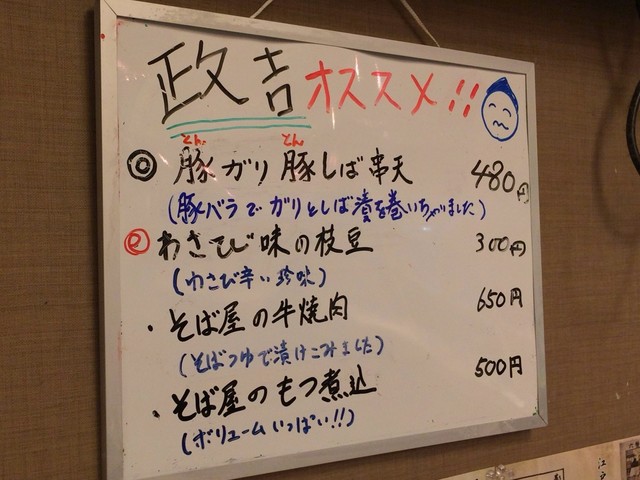 政吉オススメ!!
◎ 豚ガリ豚しば串天 480円
とん とん
(豚バラでガリとしば漬を巻いちゃいました)
わさび味の枝豆 300円
(わさび辛い珍味)
・そば屋の牛焼肉 650円
(そばつゆで漬けこみました)
・そば屋のもつ煮込 500円
(ボリュームいっぱい!!)
江戸